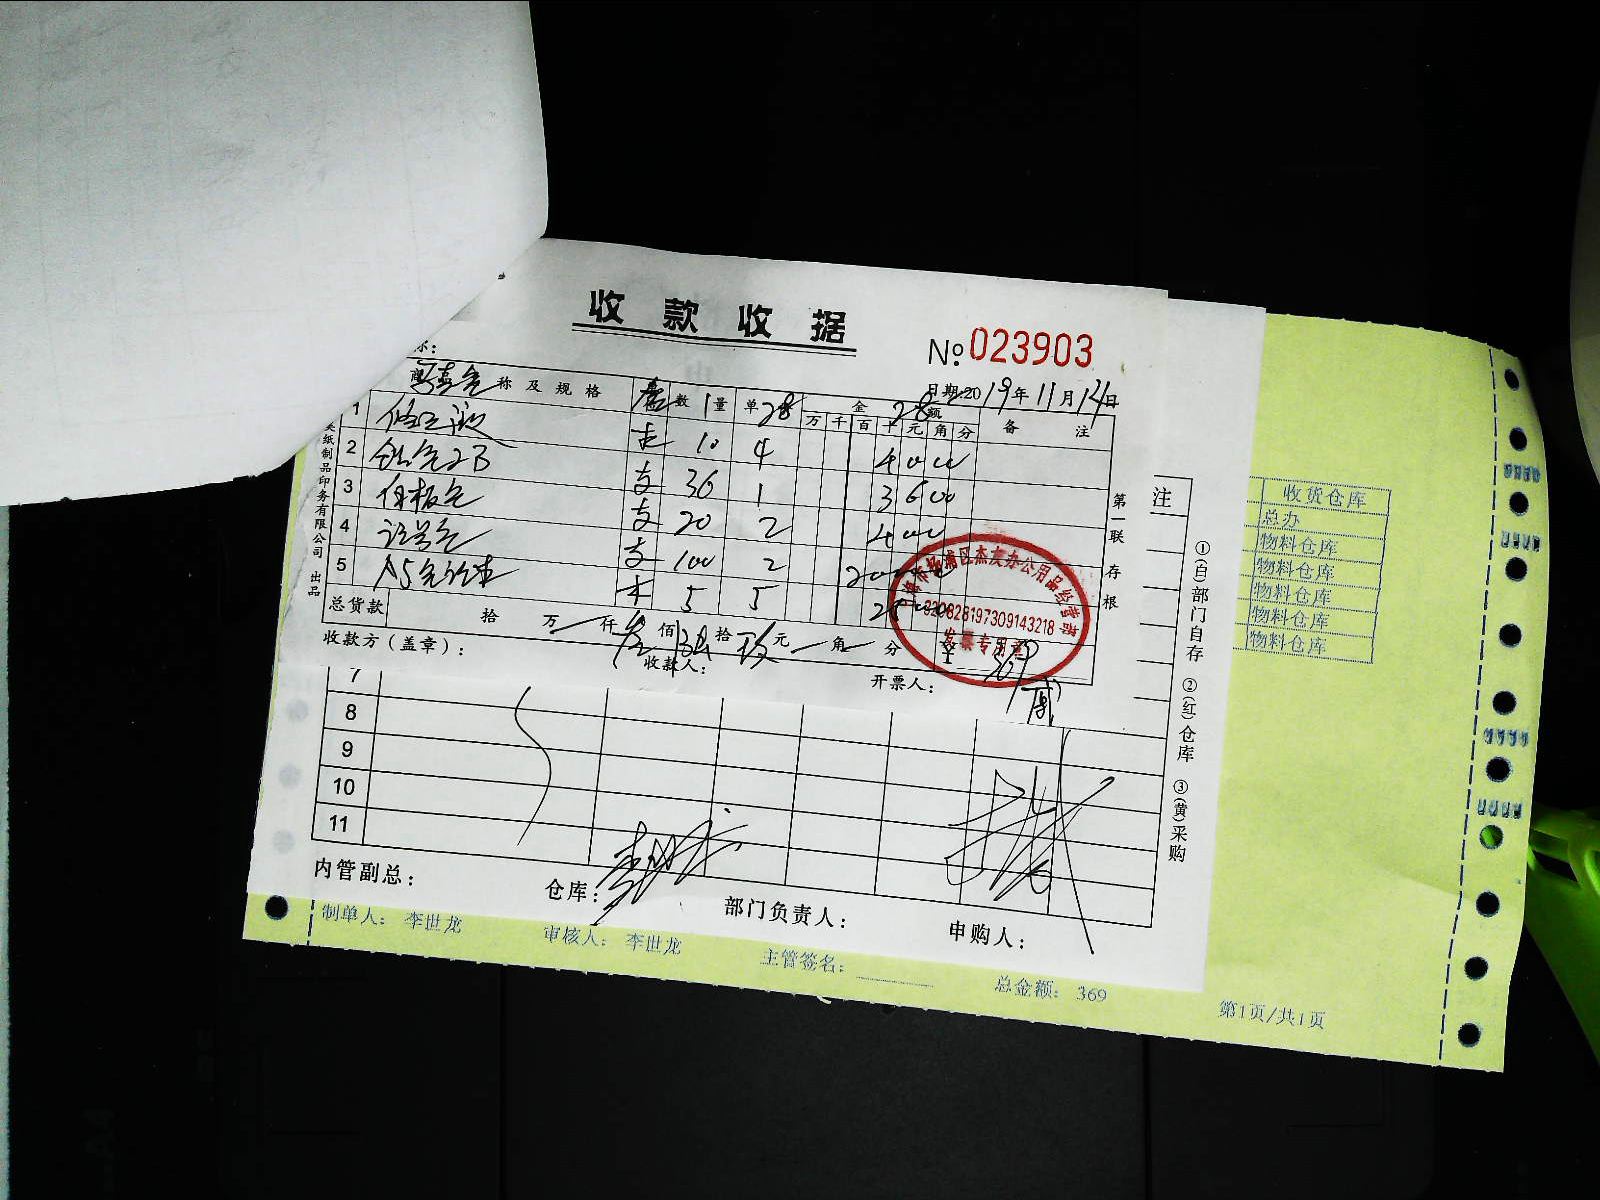 收款收据
№ 023903
称：
日期：2019年11月14日
称及规格 数量 1 单 28 金额 28 备注
万 千 百 十 元 角 分
1 修正液 10 4 4000
2 铅笔2B 支 36 1 3600
3 白板笔 支 20 2 4000
4 记号笔 支 100 2 200
5 A5笔记本 本 5 5 25
总货款 拾 万 仟 叁 佰 陆 拾 玖 元 角 分 369
收款方（盖章）：
收款人：
开票人：
类纸制品印务有限公司 出品
第一联 存根
杨浦区杰友办公用品经营部
920828197309143218
发票专用章
注
7
8
9
10
11
①(白)部门自存 ②(红)仓库 ③(黄)采购
内管副总：
仓库：
部门负责人：
申购人：
收货仓库
总办
物料仓库
物料仓库
物料仓库
物料仓库
物料仓库
制单人： 李世龙
审核人： 李世龙
主管签名：
总金额： 369
第1页/共1页